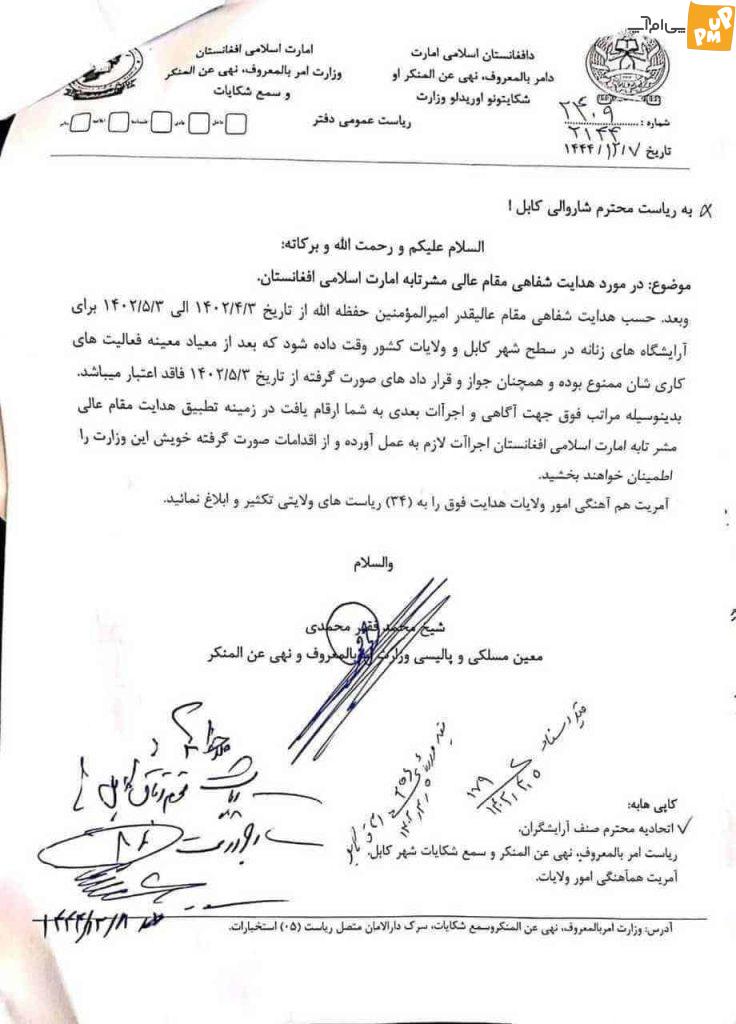 پی‌ام‌آپ
PM UP
دافغانستان اسلامی امارت
دامر بالمعروف، نهی عن المنکر او
شکایتونو اوریدلو وزارت
امارت اسلامی افغانستان
وزارت امر بالمعروف، نهی عن المنکر
و سمع شکایات
ریاست عمومی دفتر
شماره : ۲۴۰۹
۲۱۴۴
تاریخ ۱۴۴۴/۱۲/۷
به ریاست محترم شاروالی کابل !
السلام علیکم و رحمت الله و برکاته:
موضوع: در مورد هدایت شفاهی مقام عالی مشرتابه امارت اسلامی افغانستان.
وبعد. حسب هدایت شفاهی مقام عالیقدر امیرالمؤمنین حفظه الله از تاریخ ۱۴۰۲/۴/۳ الی ۱۴۰۲/۵/۳ برای
آرایشگاه های زنانه در سطح شهر کابل و ولایات کشور وقت داده شود که بعد از معیاد معینه فعالیت های
کاری شان ممنوع بوده و همچنان جواز و قرار داد های صورت گرفته از تاریخ ۱۴۰۲/۵/۳ فاقد اعتبار میباشد.
بدینوسیله مراتب فوق جهت آگاهی و اجرآات بعدی به شما ارقام یافت در زمینه تطبیق هدایت مقام عالی
مشر تابه امارت اسلامی افغانستان اجراآت لازم به عمل آورده و از اقدامات صورت گرفته خویش این وزارت را
اطمینان خواهند بخشید.
آمریت هم آهنگی امور ولایات هدایت فوق را به (۳۴) ریاست های ولایتی تکثیر و ابلاغ نمائید.
والسلام
شیخ محمد فقیر محمدی
معین مسلکی و پالیسی وزارت امر بالمعروف و نهی عن المنکر
کاپی هابه:
اتحادیه محترم صنف آرایشگران.
ریاست امر بالمعروف، نهی عن المنکر و سمع شکایات شهر کابل.
آمریت همآهنگی امور ولایات.
۱۴۴۴/۱۲/۸
آدرس: وزارت امربالمعروف، نهی عن المنکروسمع شکایات، سرک دارالامان متصل ریاست (۰۵) استخبارات.